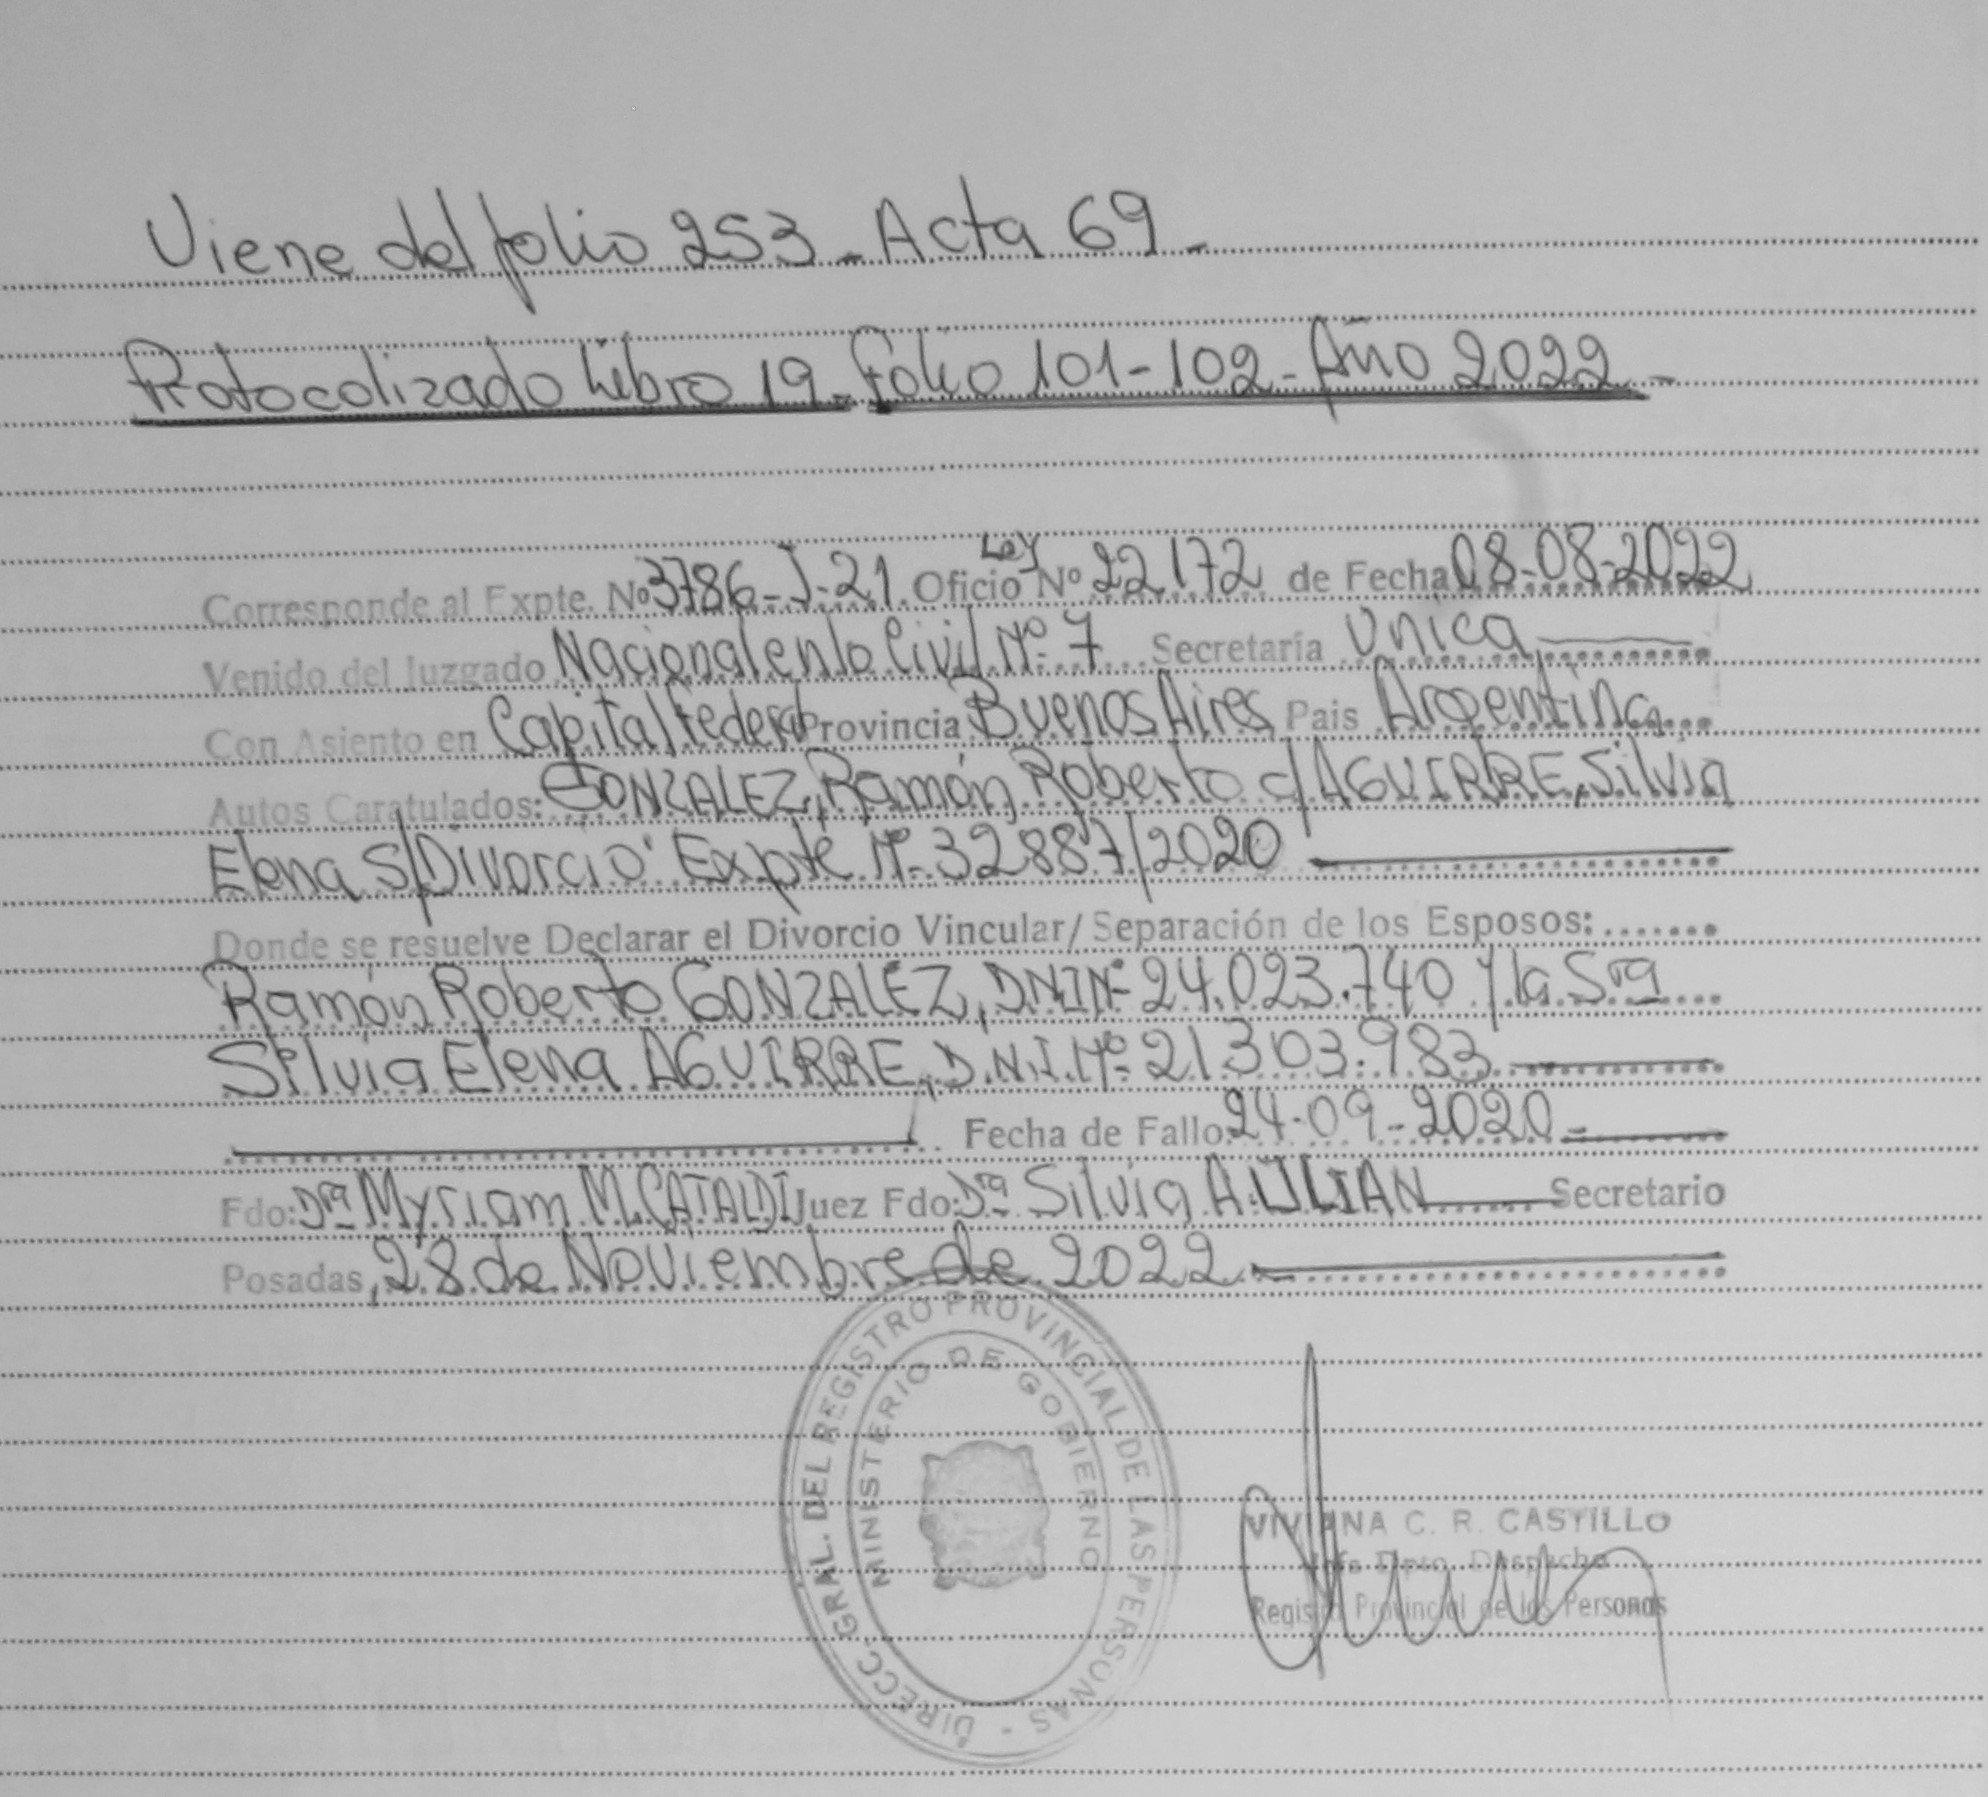 Viene del folio 253 - Acta 69 -
Protocolizado Libro 19 - Folio 101-102 - Año 2022 -
Corresponde al Expte. Nº 3786-J-21 Oficio Ley Nº 22.172 de Fecha 08-08-2022
Venido del Juzgado Nacional en lo Civil Nº 7 Secretaría Unica
Con Asiento en Capital Federal Provincia Buenos Aires Pais Argentina
Autos Caratulados: GONZALEZ, Ramón Roberto c/ AGUIRRE, Silvia
Elena S/Divorcio" Expte Nº 32887/2020
Donde se resuelve Declarar el Divorcio Vincular/ Separación de los Esposos:
Ramón Roberto GONZALEZ, DNI Nº 24.023.740 y la Sra
Silvia Elena AGUIRRE, D.N.I. Nº 21.303.983
Fecha de Fallo: 24-09-2020 -
Fdo: Dra Myriam M. CATALDI Juez Fdo: Dra Silvia A. ULIAN Secretario
Posadas, 28 de Noviembre de 2022 -
DIRECC. GRAL. DEL REGISTRO PROVINCIAL DE LAS PERSONAS -
MINISTERIO DE GOBIERNO
VIVIANA C. R. CASTILLO
Jefe Dpto. Despacho
Registro Provincial de las Personas